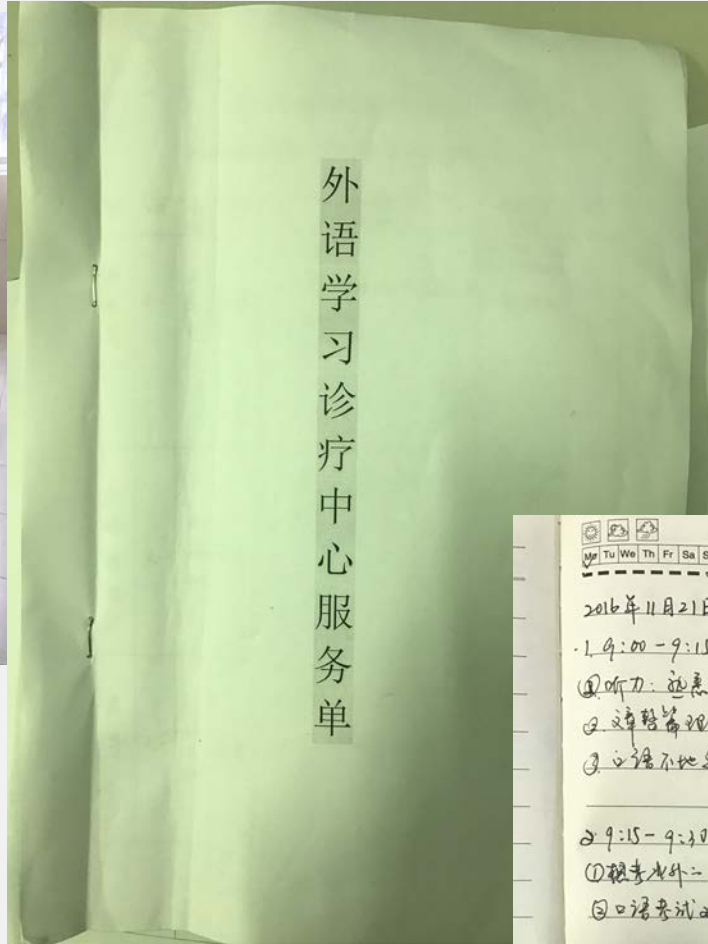 外语学习诊疗中心服务单
Mo Tu We Th Fr Sa S
2016年11月21日
1. 9:00-9:15
①听力:熟悉
②文章整篇理
③口语不地
2. 9:15-9:30
①想考北外二
②口语考试